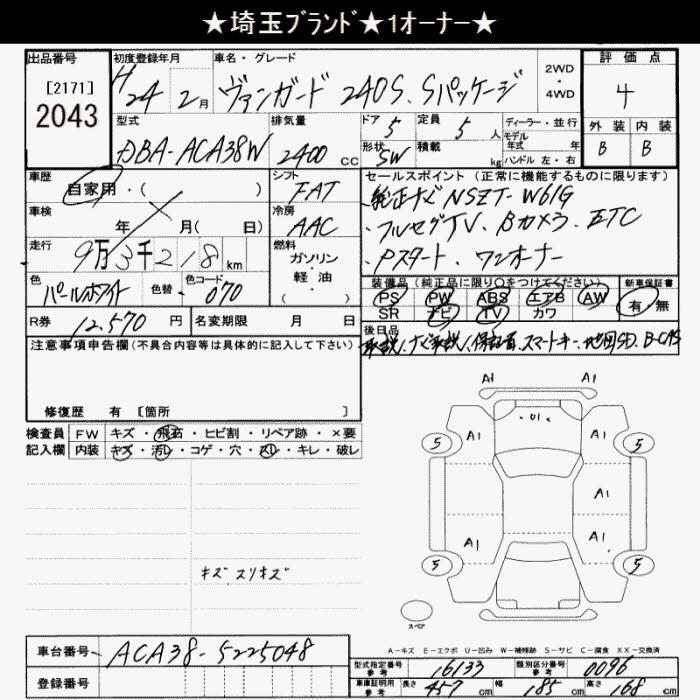 ★埼玉ブランド★1オーナー★
出品番号 初度登録年月 車名・グレード 2WD・4WD 評価点
[2171]
2043 H24年2月 ヴァンガード 240S.Sパッケージ 4
型式 排気量 ドア 5 定員 5人 ディーラー・並行 外装 内装
DBA-ACA38W 2400cc 形状 SW 積載 kg モデル年式 年 ハンドル 左・右 B B
車歴 シフト セールスポイント (正常に機能するものに限ります)
自家用・( ) FAT ・純正ナビ NSZT-W61G
車検 冷房 ・フルセグTV、Bカメラ、ETC
年 月( 日) AAC ・Pスタート、ワンオーナー
走行 9万3千218km 燃料 ガソリン・軽油・
色 パールホワイト 色替 色コード 070
装備品 (純正品に限り○をつけてください) 新車保証書
PS PW ABS エアB AW 有・無
SR ナビ TV カワ
R券 12,570円 名変期限 月 日
後日品
取説、ナビ取説、保証書、スマートキー、地図SD、B-CAS
注意事項申告欄(不具合内容等は具体的に記入して下さい)
修復歴 有 [箇所 ]
検査員 FW キズ・飛石・ヒビ割・リペア跡・×要
記入欄 内装 キズ・汚レ・コゲ・穴・スレ・キレ・破レ
キズ スリキズ
A1 A1
・U1・
5 A1 A1 5
A1
A1 A1
5 5
スペア
A－キズ E－エクボ U－凹み W－補修跡 S－サビ C－腐食 XX－交換済
車台番号 ACA38-5225048
登録番号
型式指定番号 参考 16133 類別区分番号 参考 0096
車庫証明用 参考 長さ 457cm 幅 185cm 高さ 168cm